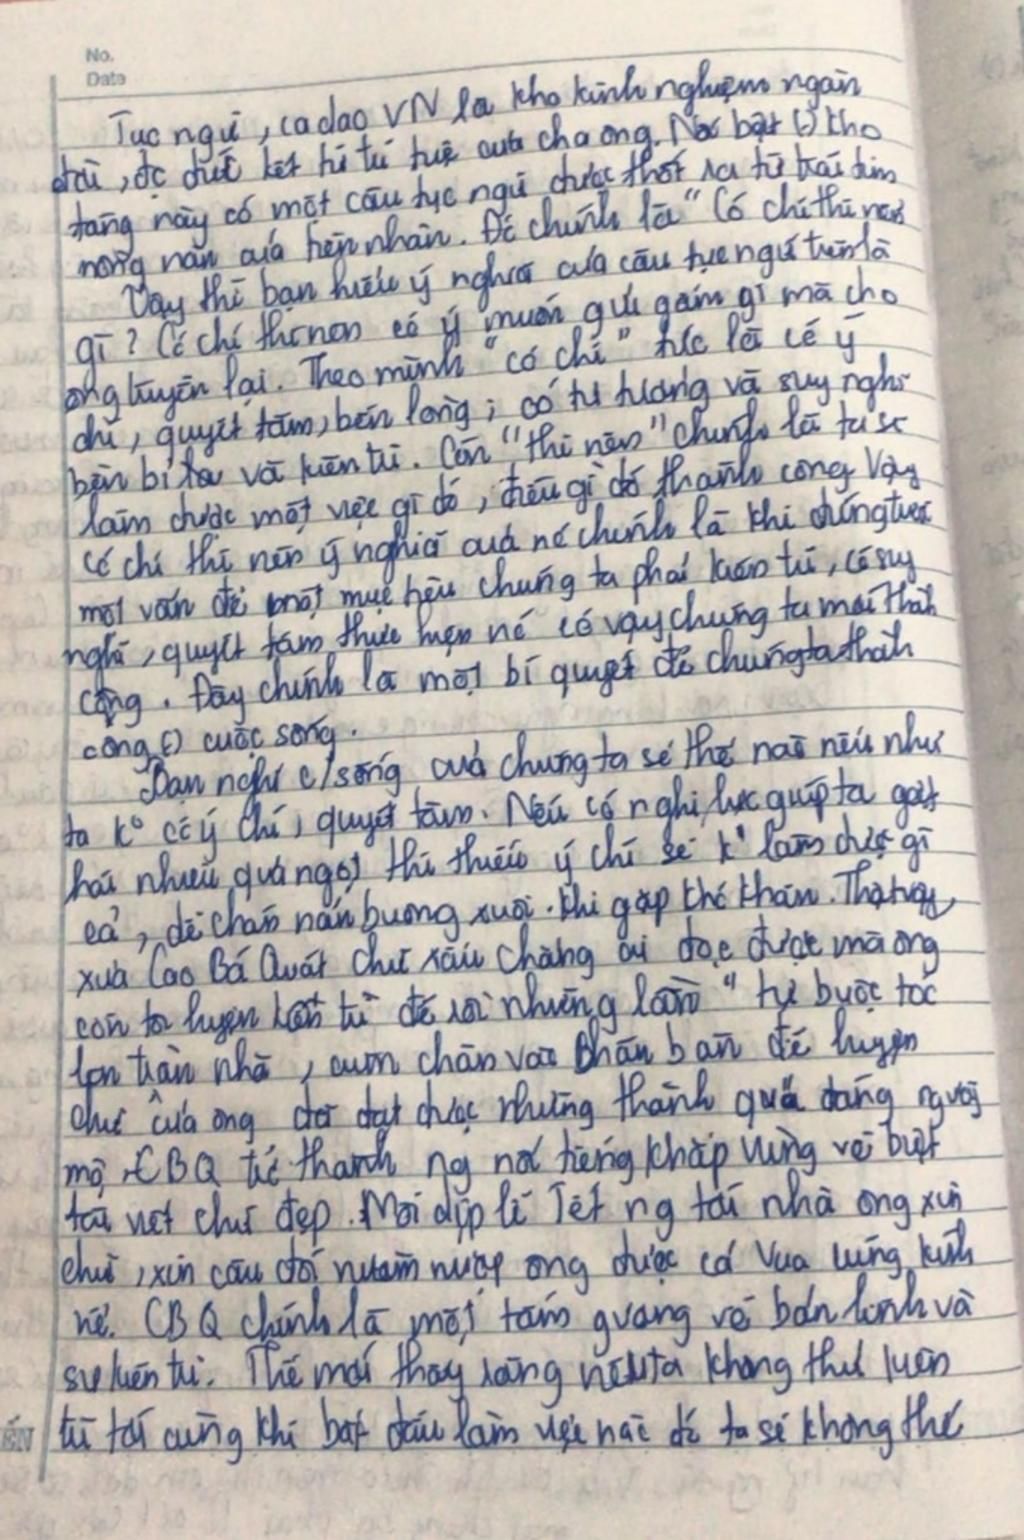 No.
Date
Tục ngữ, ca dao VN là kho kinh nghiệm ngàn
đời, đc đúc kết từ trí tuệ của cha ông. Nổi bật (.) kho
tàng này có một câu tục ngữ được thốt ra từ trái tim
nồng nàn của tiền nhân. Đó chính là "Có chí thì nên
Vậy thì bạn hiểu ý nghĩa của câu tục ngữ trên là
gì? Có chí thì nên có ý muốn gửi gắm gì mà cho
ông truyền lại. Theo mình "có chí" tức là có ý
chí, quyết tâm, bền lòng; có tư tưởng và suy nghĩ
bền bỉ và kiên trì. Còn "thì nên" chính là ta sẽ
làm được một việc gì đó, điều gì đó thành công Vậy
có chí thì nên ý nghĩa của nó chính là khi đứng trước
một vấn đề một mục tiêu chúng ta phải kiên trì, có suy
nghĩ, quyết tâm thực hiện nó có vậy chúng ta mới thành
công. Đây chính là một bí quyết để chúng ta thành
công (.) cuộc sống.
Bạn nghĩ c/sống của chúng ta sẽ thế nào nếu như
ta ko có ý chí, quyết tâm. Nếu có nghị lực giúp ta gặt
hái nhiều quả ngọt thì thiếu ý chí sẽ ko làm được gì
cả, dễ chán nản buông xuôi. khi gặp khó khăn. Thật vậy,
xưa Cao Bá Quát chữ xấu chẳng ai đọc được mà ông
còn luyện kiên trì để rồi những lần "tự buộc tóc
lên trần nhà, cùm chân vào chân bàn để luyện
chữ của ông đã đạt được những thành quả đáng ngưỡng
mộ. CBQ trở thành ng nổi tiếng khắp vùng về biệt
tài viết chữ đẹp. Mỗi dịp lễ Tết ng tới nhà ông xin
chữ, xin câu đối nườm nượp ông được cả Vua cũng kính
nể. CBQ chính là một tấm gương về bản lĩnh và
sự kiên trì. Thế mới thấy rằng nếu ta không thể kiên
trì tới cùng khi bắt đầu làm việc nào đó ta sẽ không thể